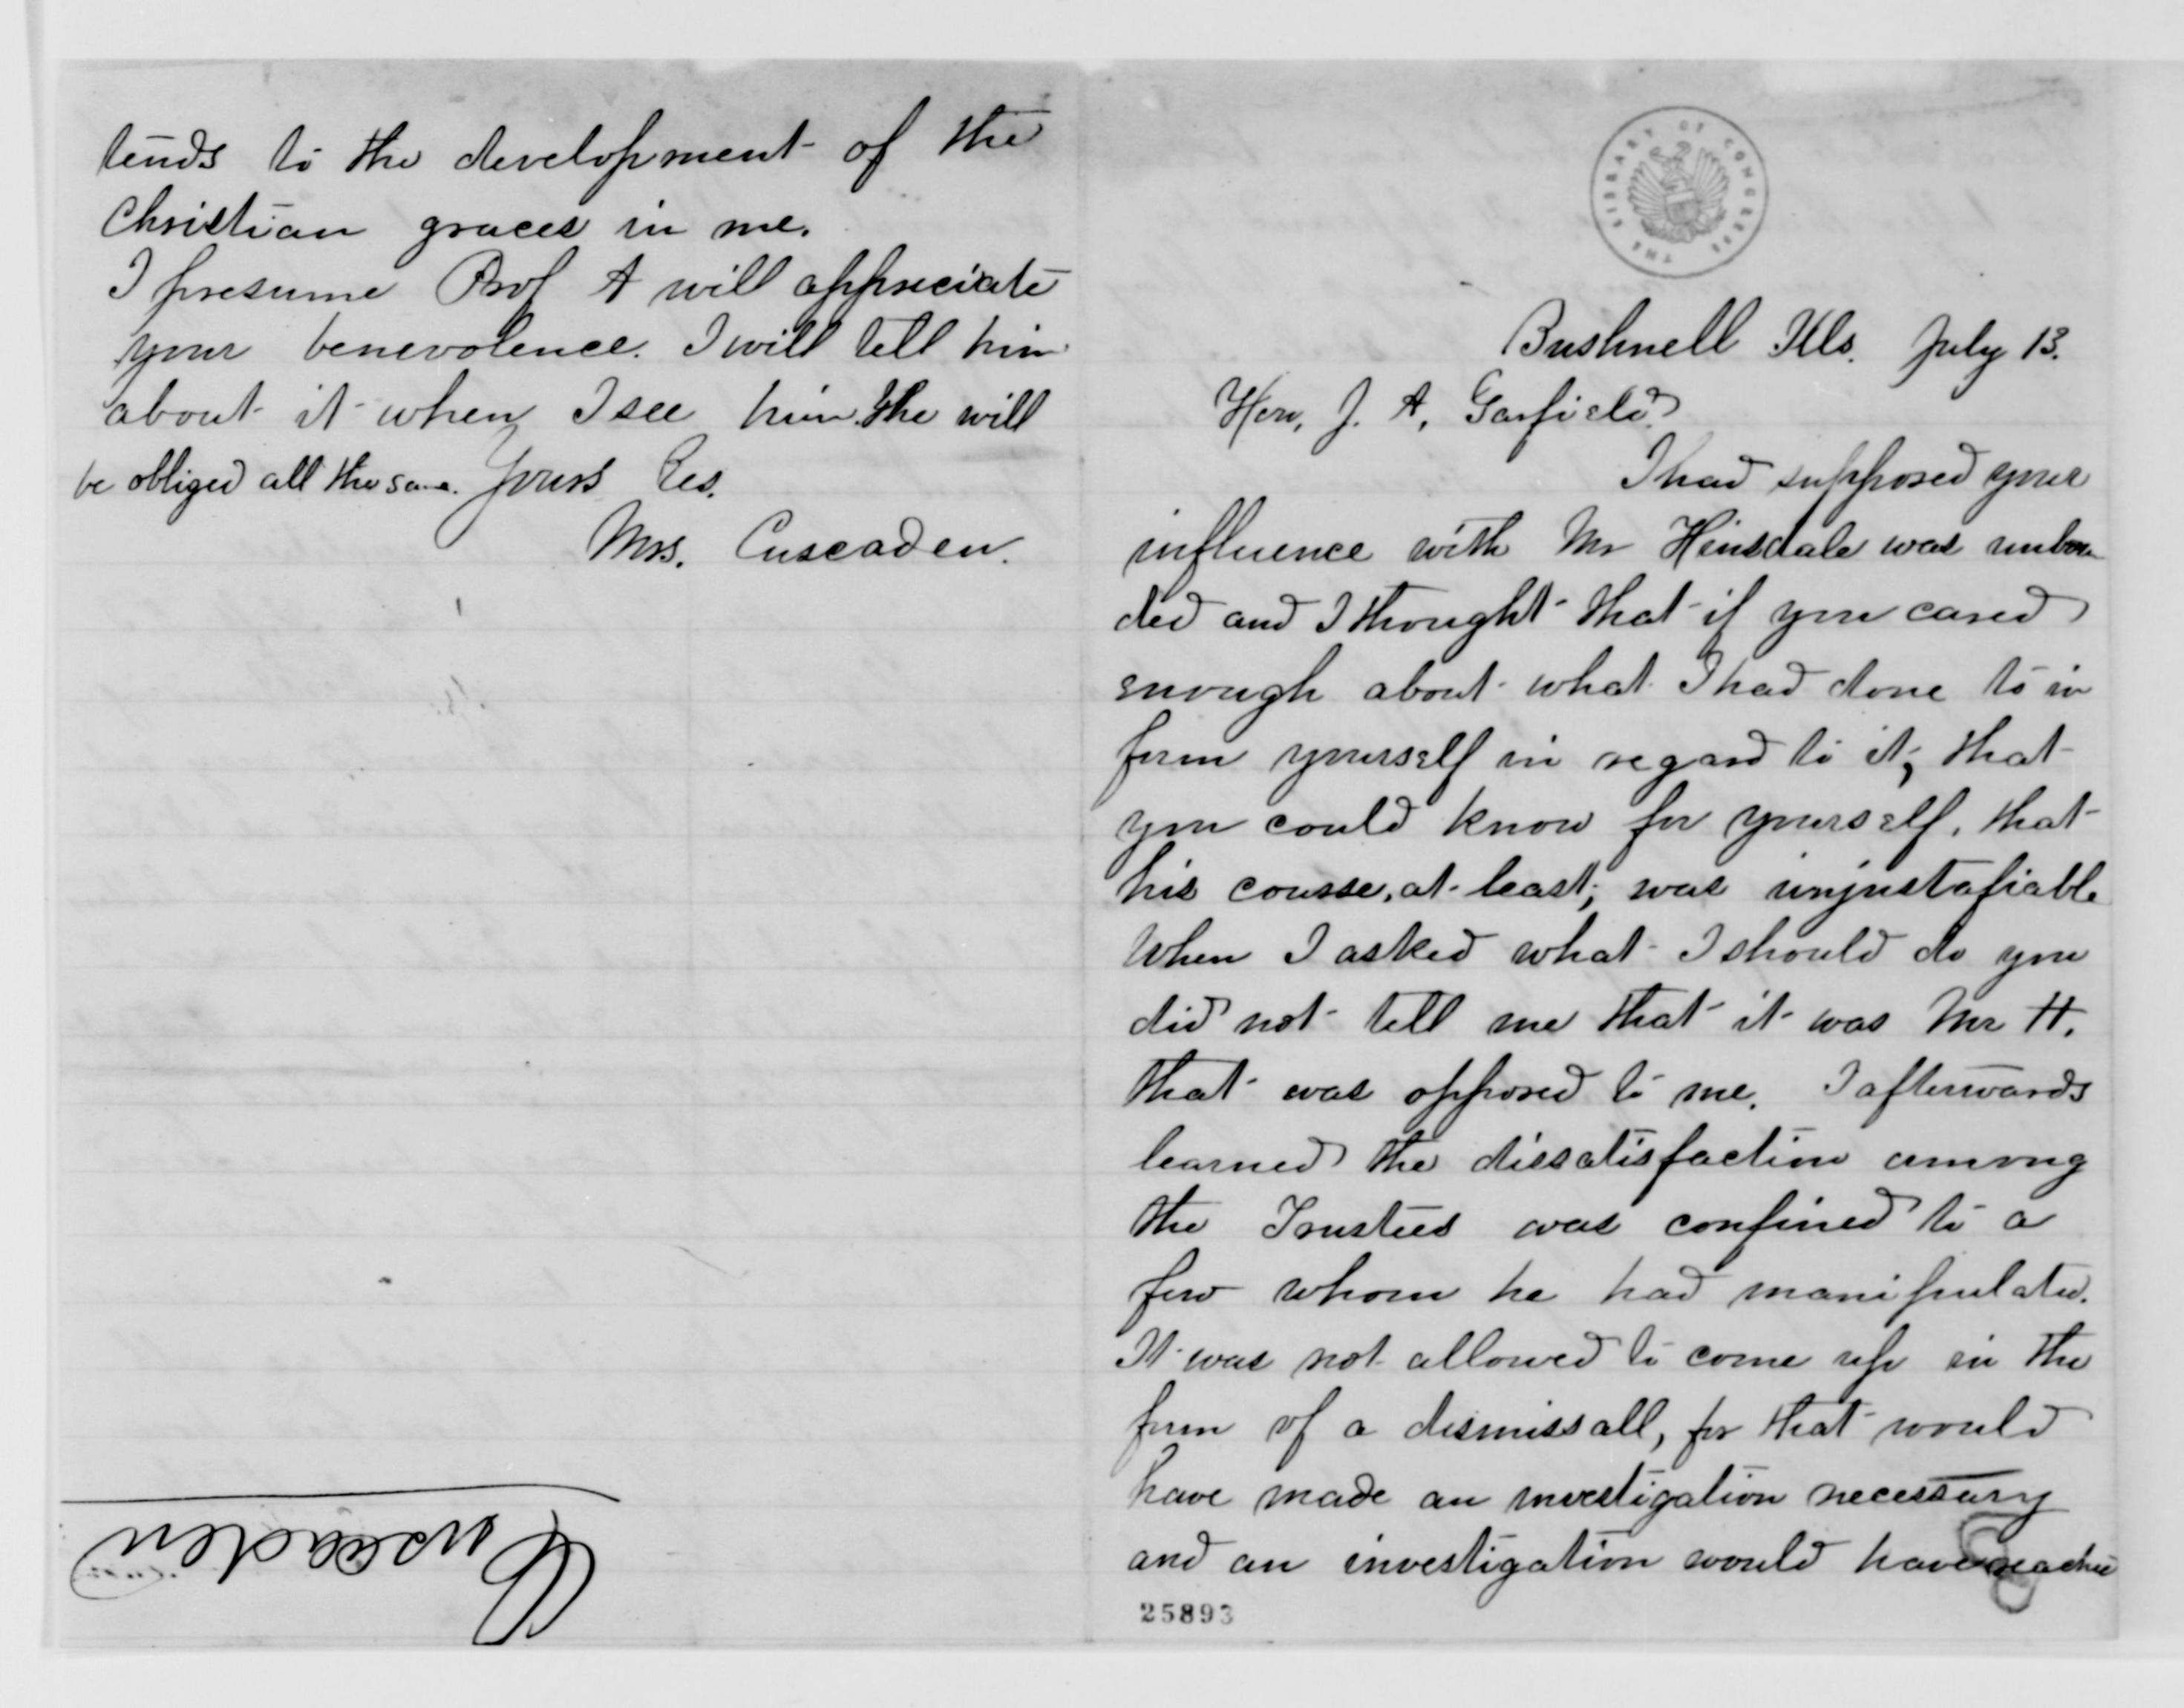 tends to the development of the
Christian graces in me.
I presume Prof A will appreciate
your benevolence. I will tell him
about it when I see him. He will
be obliged all the same. Yours &es.
Mrs. Cuscaden.
Cuscaden
THE LIBRARY OF CONGRESS
Bushnell Ills. July 13.
Hon, J. A, Garfield
I had supposed your
influence with Mr Hinsdale was unboun
ded and I thought that if you cared
enough about what I had done to in
form yourself in regard to it, that
you could know for yourself, that
his course, at least, was unjustafiable
When I asked what I should do you
did not tell me that it was Mr H.
that was opposed to me. I afterwards
learned the dissatisfaction among
the Trustees was confined to a
few whom he had manipulated.
It was not allowed to come up in the
form of a dismissall, for that would
have made an investigation necessary
and an investigation would have reached
25893